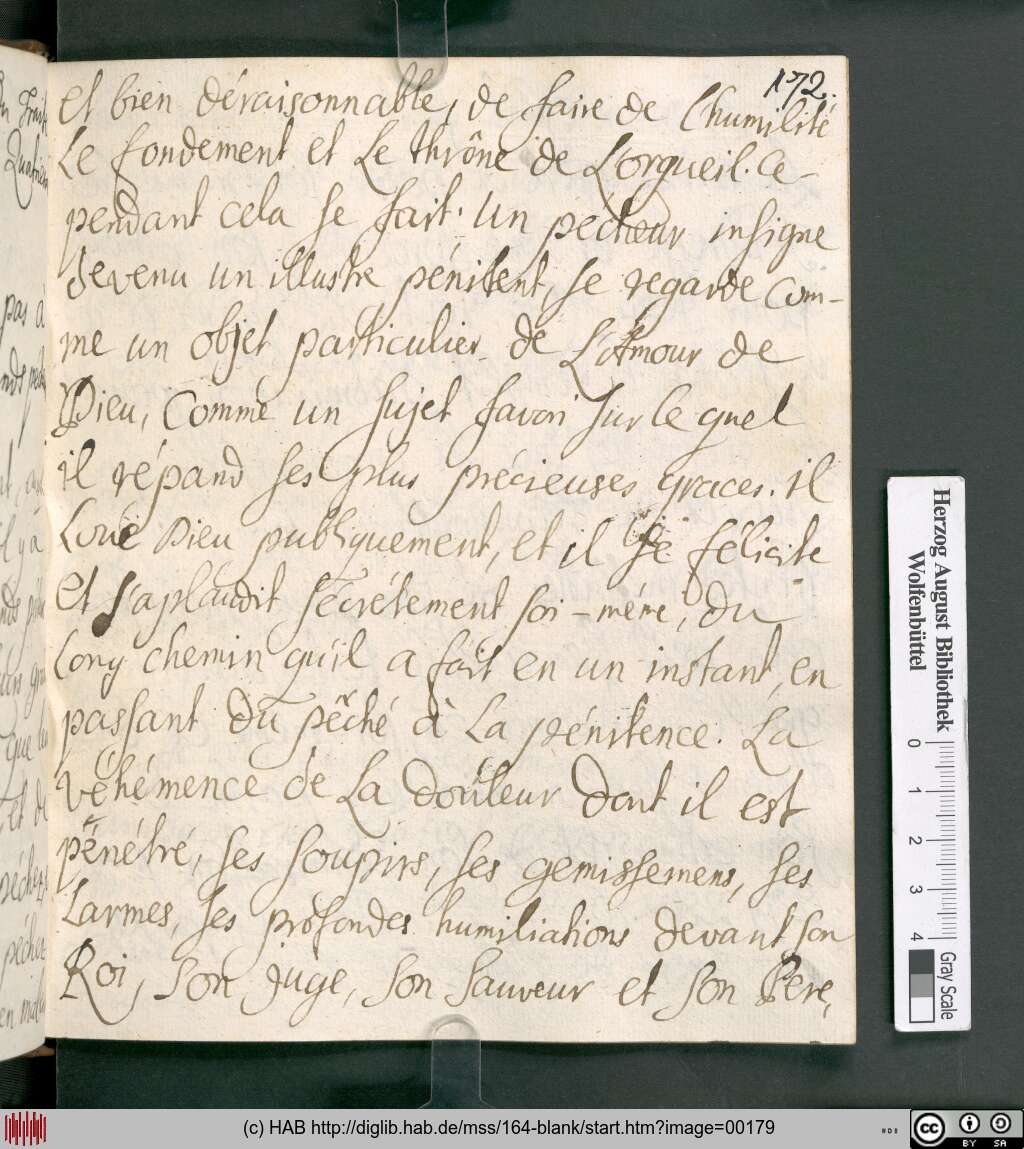 172.
et bien déraisonnable, de faire de l'humilité
Le fondement et Le thrône de Lorgueil. Ce-
pendant cela se fait. Un pecheur insigne
devenu un illustre pénitent, se regarde com-
me un objet particulier de L'Amour de
Dieu, Comme un sujet favori sur le quel
il répand ses plus précieuses graces. il
Loue Dieu publiquement, et il se félicite
et s'aplaudit secrétement soi-même, du
Long chemin qu'il a fait en un instant, en
passant du pêché à La pénitence. La
véhémence de La douleur dont il est
pénétré, ses soupirs, ses gemissemens, ses
Larmes, ses profondes humiliations devant son
Roi, son juge, son Sauveur et son Pere,
pas à
il y a
que
et de
Herzog August Bibliothek
Wolfenbüttel
0 1 2 3 4
Gray Scale
(c) HAB http://diglib.hab.de/mss/164-blank/start.htm?image=00179
cc BY SA